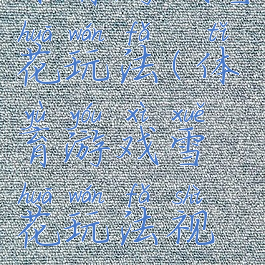 huā wán fǎ tǐ
花玩法(体
yù yóu xì xuě
育游戏雪
huā wán fǎ shì
花玩法视